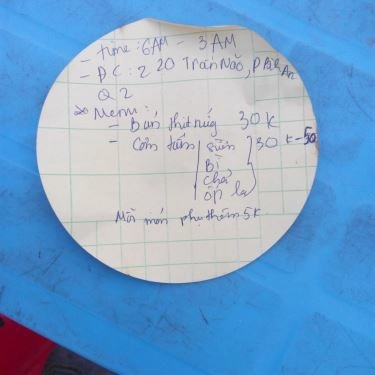 - time: 6AM - 3AM
- ĐC: 220 Trần Não, P Bình An
Q2
* Menu:
- Bún thịt nướng 30K
- Cơm tấm sườn 30K-50
Bì
Chả
ốp la
Mỗi món phụ thêm 5K